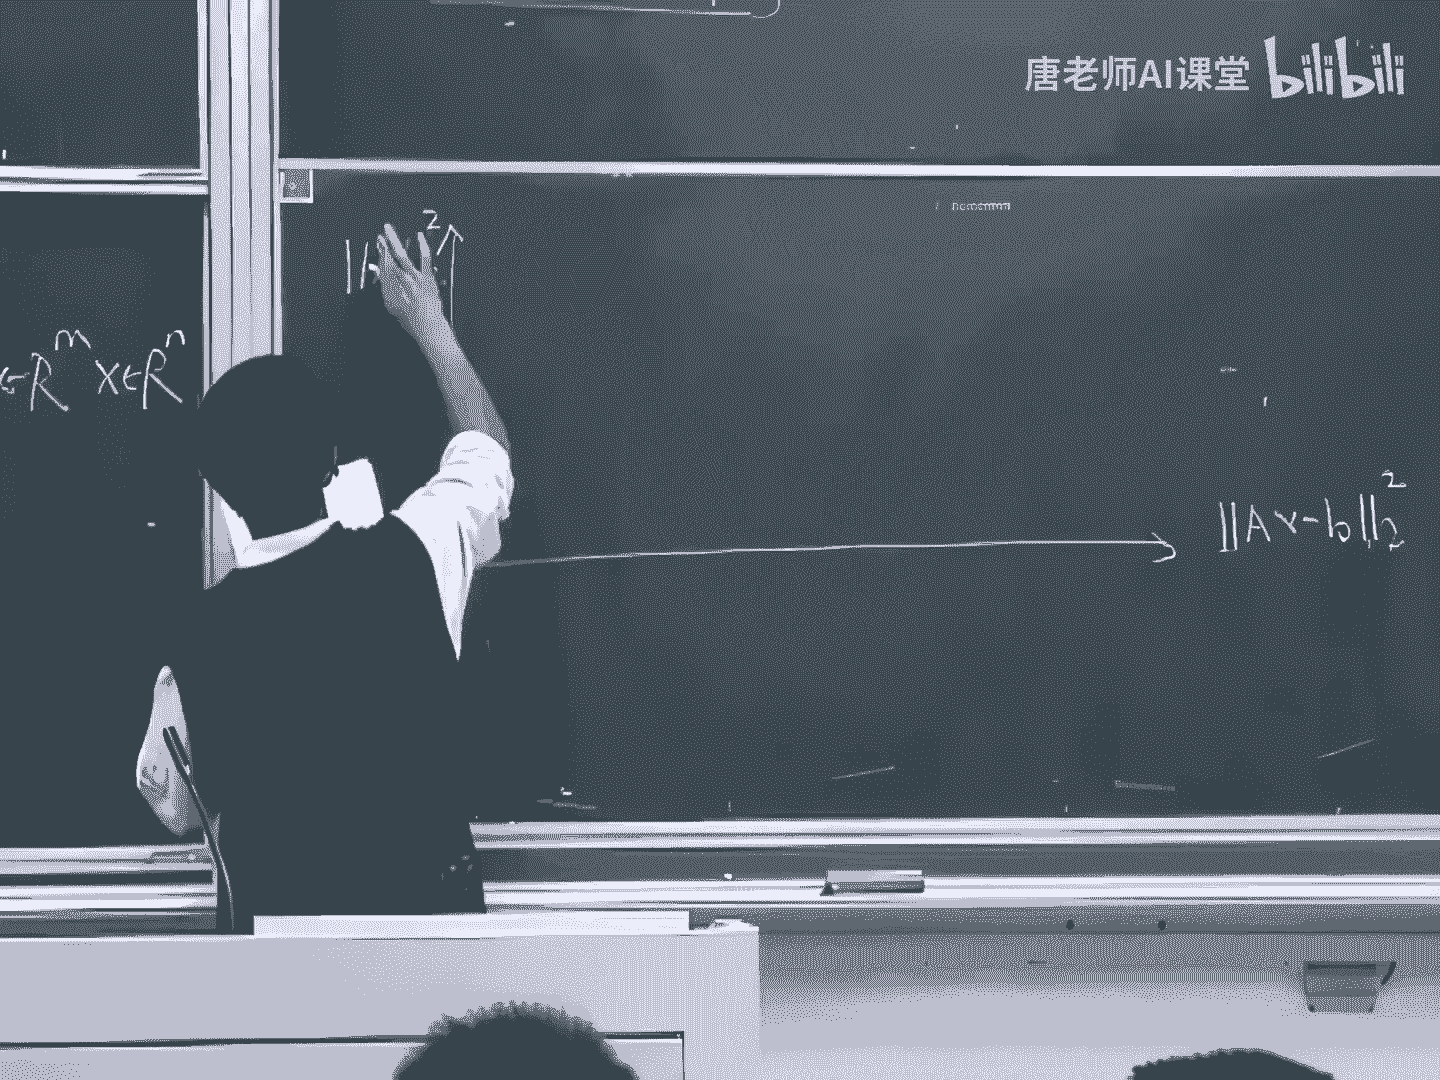 唐老师AI课堂 bilibili
2
∈R^m x∈R^n
||Ax-b||_2^2